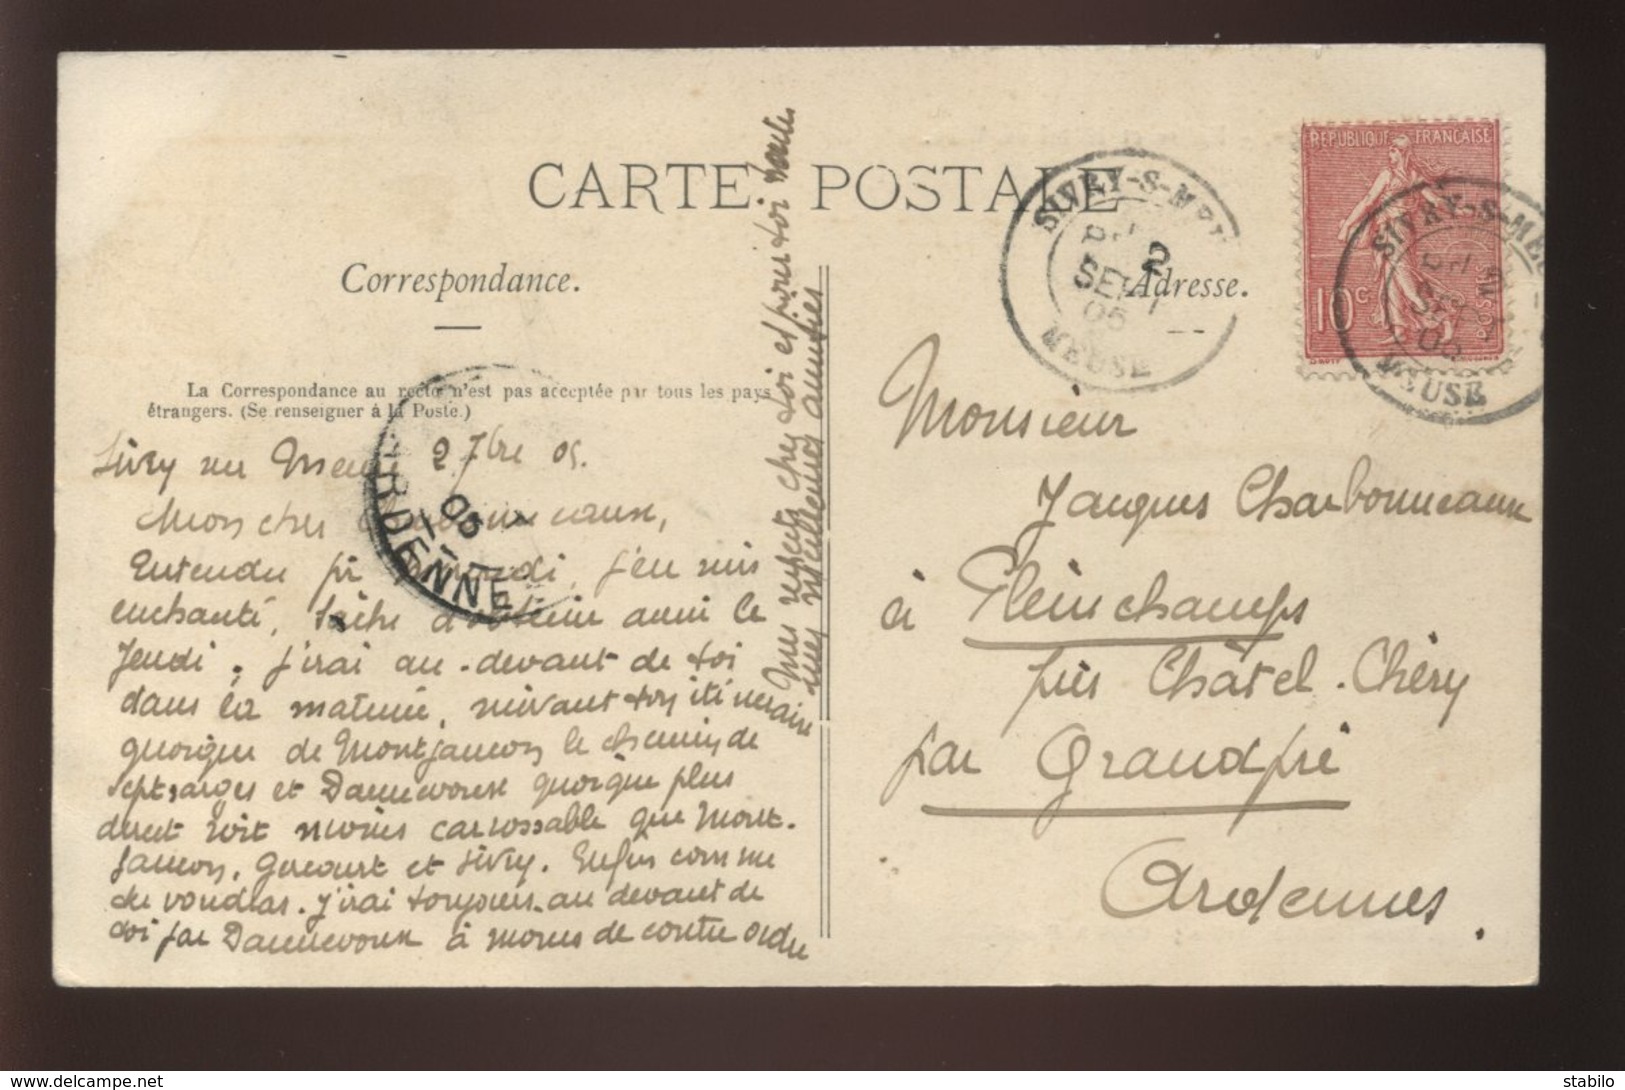 CARTE POSTALE
Correspondance.
La Correspondance au recto n'est pas acceptée par tous les pays
étrangers. (Se renseigner à la Poste.)
Sivry sur Meuse 2 7bre 05.
Mon cher Charbonneaux,
Entendu pr vendredi, j'en suis
enchanté, tâche d'obtenir aussi le
Jeudi, j'irai au-devant de toi
dans la matinée, suivant ton itinéraire
quoique de Montfaucon le chemin de
Septsarges et Dannevoux quoique plus
direct soit moins carrossable que Mont-
faucon, Gercourt et Sivry. Enfin comme
tu voudras. J'irai toujours au devant de
toi par Dannevoux à moins de contre ordre
Mes respects chez toi et pour toi toutes
mes meilleures amitiés
Adresse.
Monsieur
Jacques Charbonneaux
à Pleinchamps
près Châtel-Chéry
par Grandpré
Ardennes.
REPUBLIQUE FRANÇAISE
10c
POSTES
SIVRY-S-MEUSE
2
SEPT
05
MEUSE
SIVRY-S-MEUSE
SEPT
05
MEUSE
05
ARDENNES
delcampe.net
stabilo